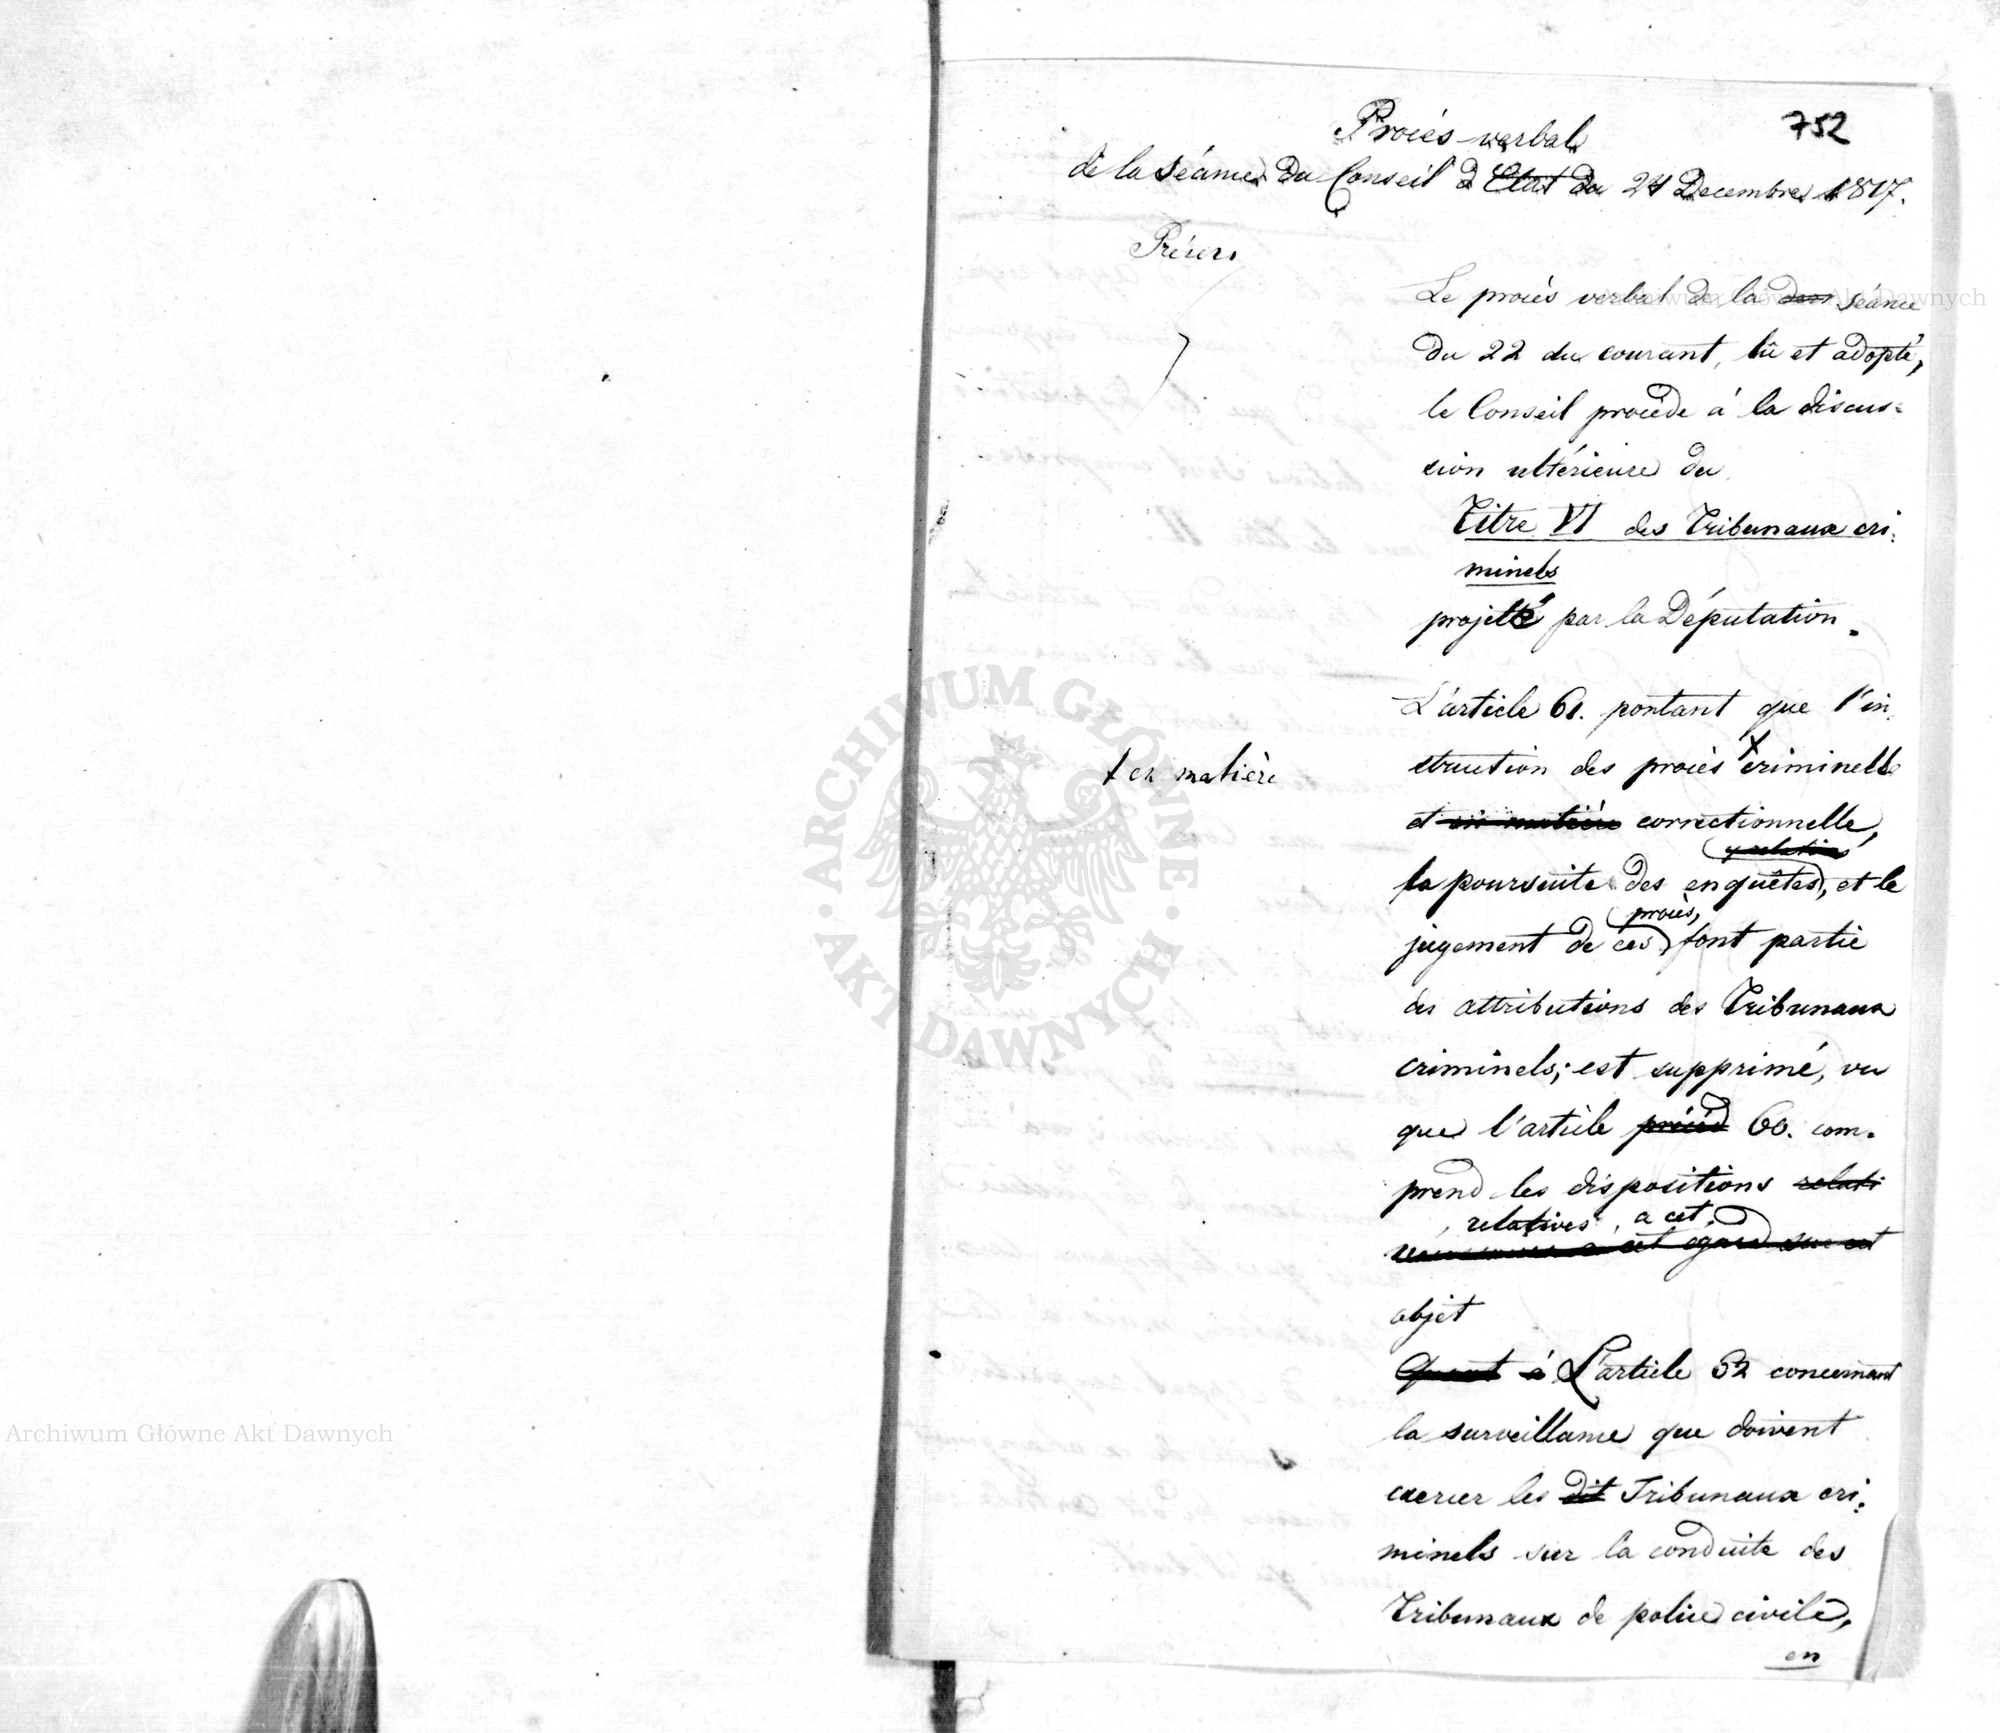 752
Procès-verbal
de la séance du Conseil d'Etat du 24 Decembre 1817.
Présens
Le procès verbal de la séance
du 22 du courant, lû et adopté,
le Conseil procède à la discus-
sion ultérieure du
Titre VI des Tribunaux cri-
minels
projetté par la Députation.
L'article 61. portant que l'in-
struction des procès criminelle
+ en matière
et en matière correctionnelle,
y relatives
la poursuite des enquêtes, et le
procès,
jugement de ces font partie
des attributions des Tribunaux
criminels; est supprimé, vu
que l'article précéd 60. com-
prend les dispositions relati
relatives, a cet
a cet égard sur cet
objet
Quant à L'article 62 concernant
la surveillance que doivent
exercer les dit Tribunaux cri-
minels sur la conduite des
Tribunaux de police civile,
en
Archiwum Główne Akt Dawnych
Archiwum Główne Akt Dawnych
ARCHIWUM GŁÓWNE · AKT DAWNYCH ·